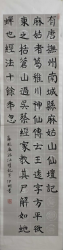 有唐撫州南城縣麻姑山仙壇記
麻姑者葛稚川神仙傳云王遠字方平欲
東之括蒼山過吳蔡經家教其尸解如蛇
蟬也經去十餘年忽